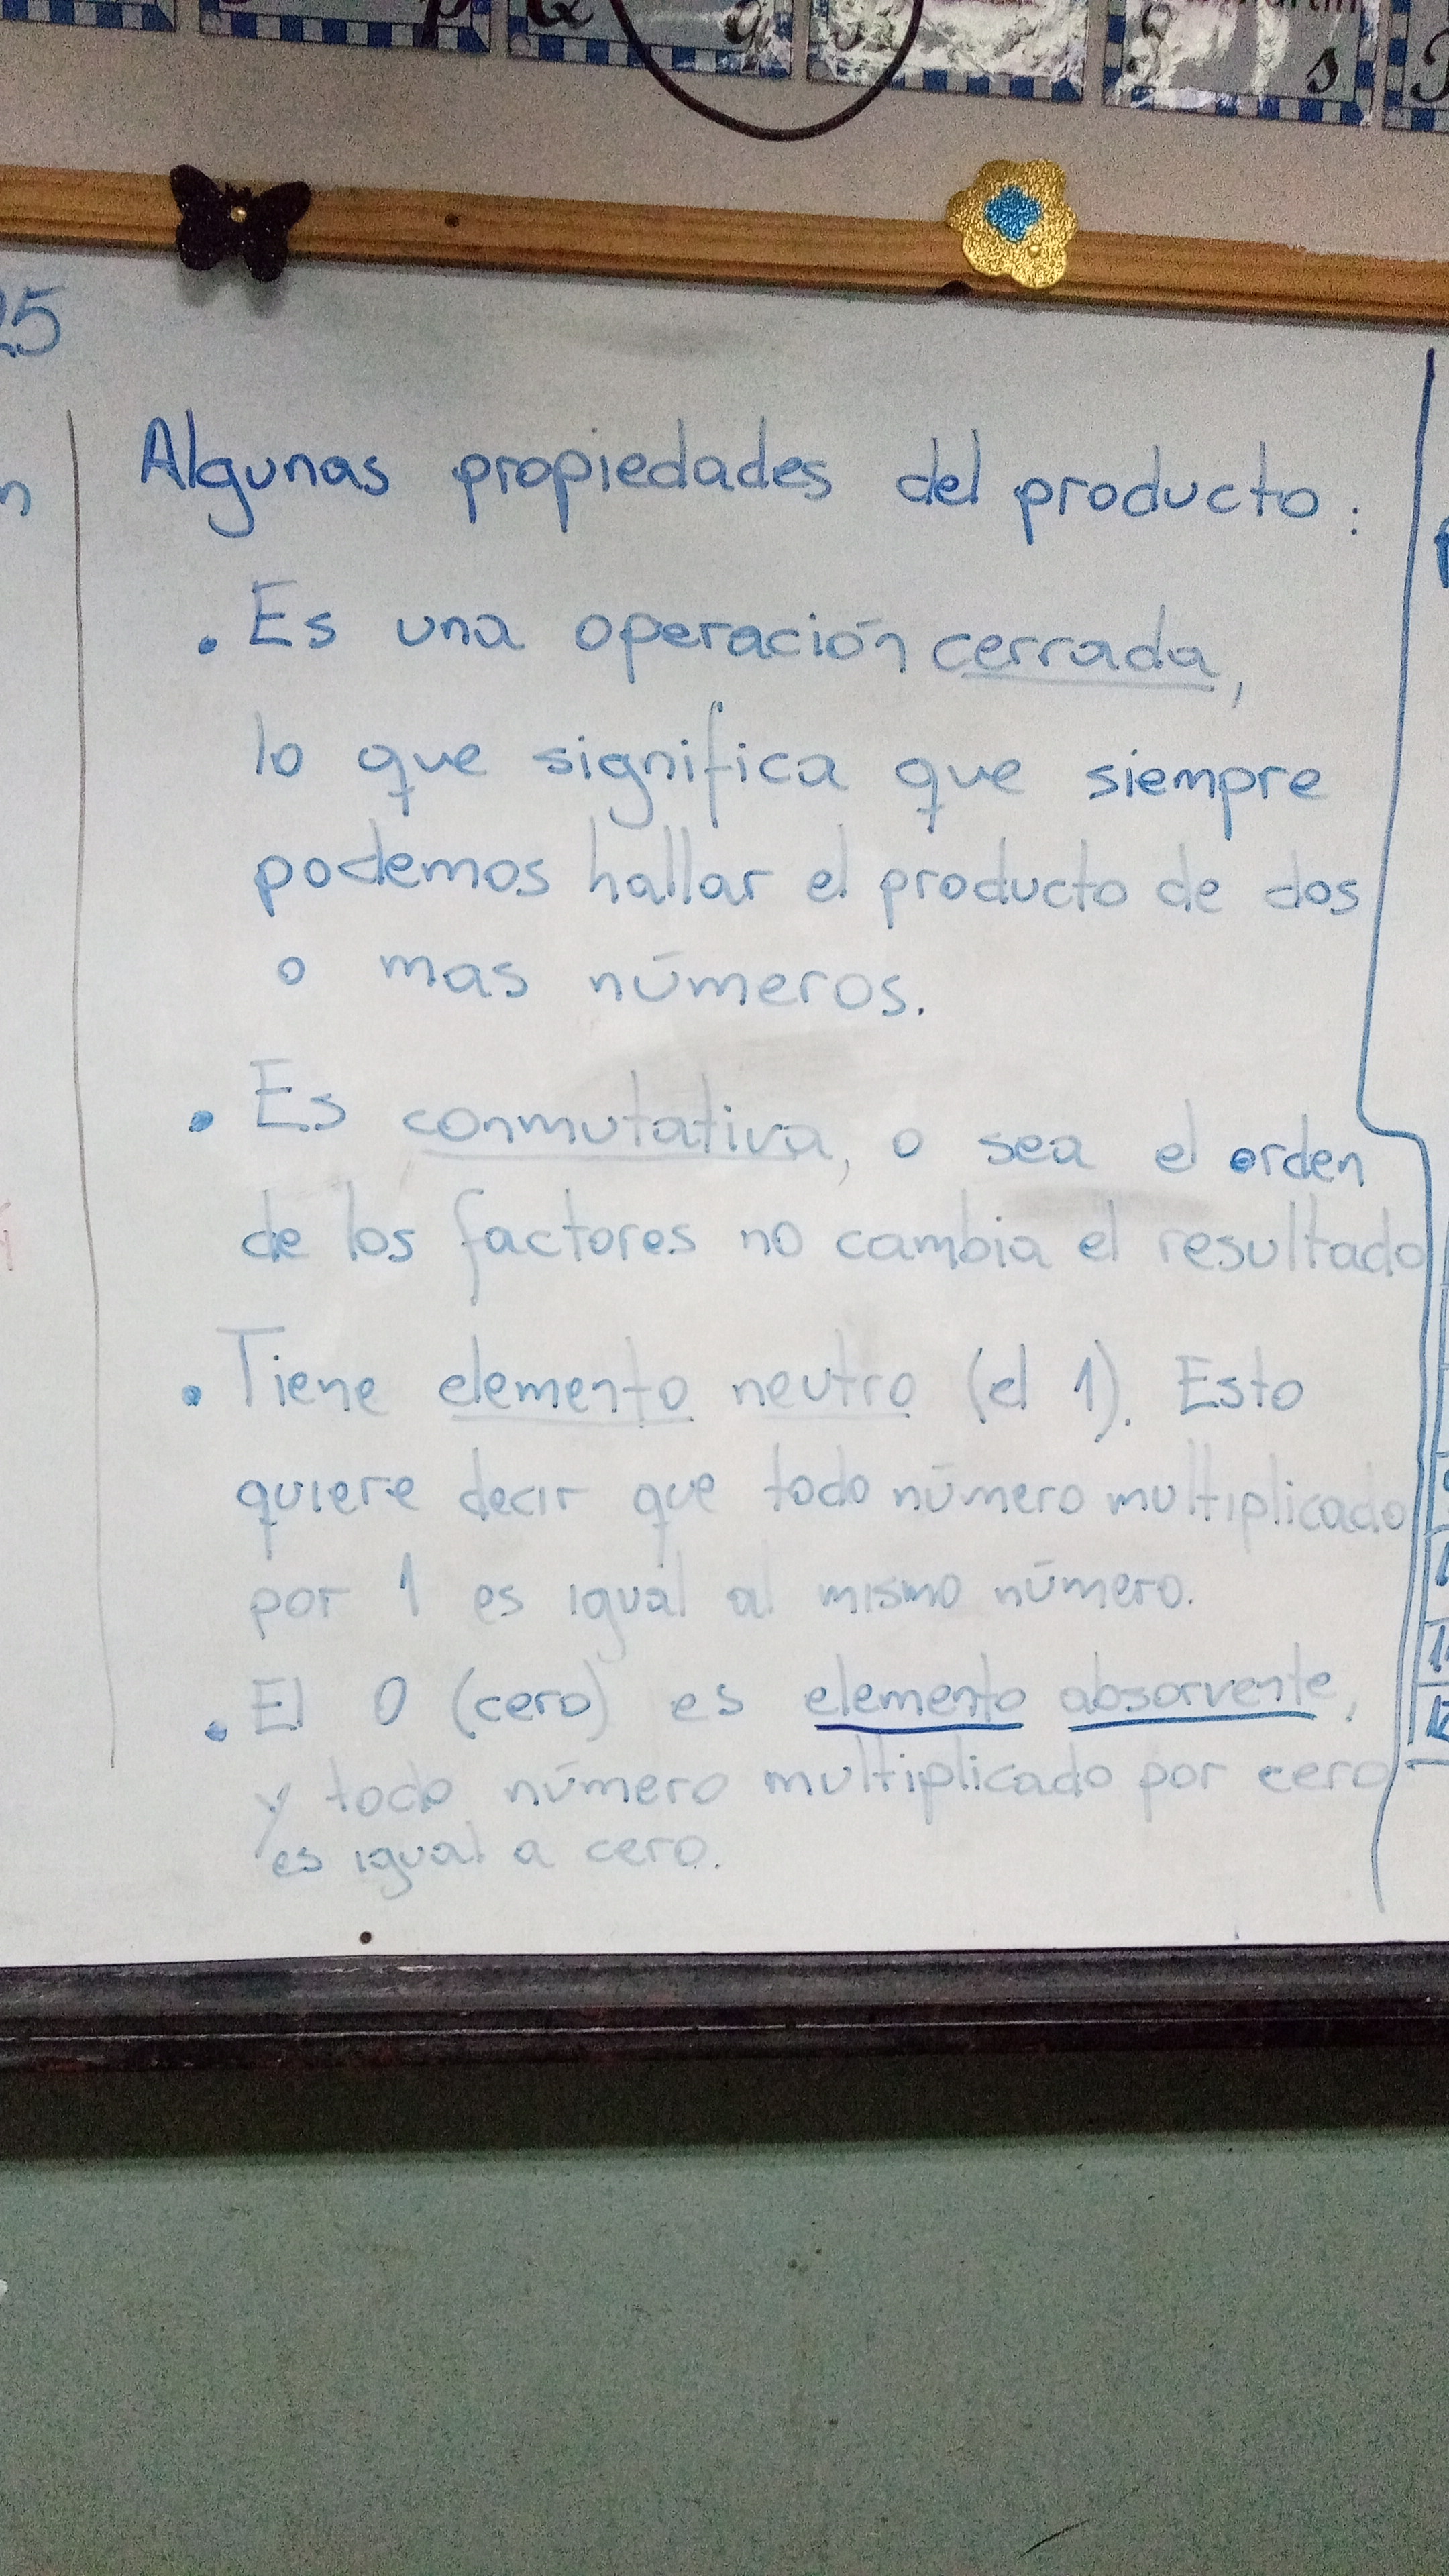 Q q s
25
n
Algunas propiedades del producto:
• Es una operación cerrada,
lo que significa que siempre
podemos hallar el producto de dos
o mas números.
• Es conmutativa, o sea el orden
de los factores no cambia el resultado
• Tiene elemento neutro (el 1). Esto
quiere decir que todo número multiplicado
por 1 es igual al mismo número.
• El 0 (cero) es elemento absorvente,
y todo número multiplicado por cero
es igual a cero.